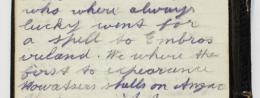 who where always
lucky went for
a spell to Embros
ireland. We where the
first to expearance
Howatsers shells on Anzac